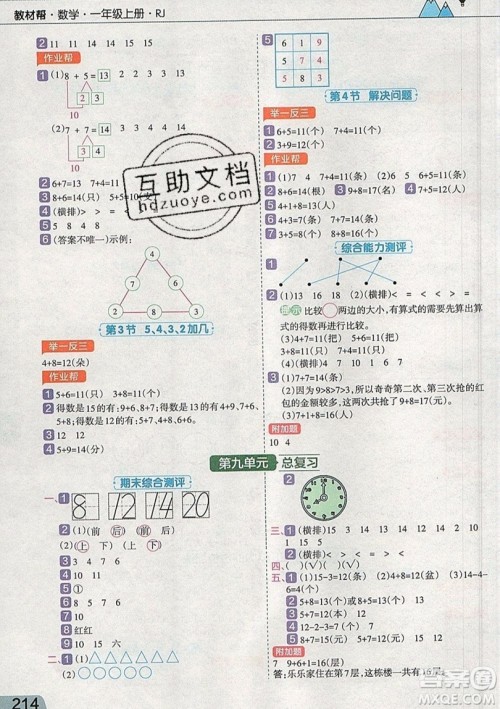 教材帮·数学·一年级上册·RJ
2 11 11 11 12 13 12
作业帮
1 (1) 8 + 5 = 13
2 3
10
(2) 7 + 7 = 14
3 4
10
2 6+7=13 7+4=11
3 8+6=14(只) 5+5=10
4 (横排)> > =
5 5 8 4 8
6 (答案不唯一)示例:
第3节 5、4、3、2加几
举一反三
4+8=12(朵)
作业帮
1 5+6=11(只) 3+8=11(只)
2 得数是15的有:9+6,8+7;得数是13的有4+9,7+6,
8+5;得数是12的有:8+4,7+5,6+6。
3 12 12
4 5+9=14(只)
5
6 8 1
4 5 9
5 2 3
第4节 解决问题
举一反三
1 6+5=11(个) 7+4=11(个)
2 3+9=12(个)
作业帮
3 8+6=14(个)
4 3+7=10(个)
5 6+5=11(条)
6 4+3=7(条) 7+4=11(条)
7 4+1+8=13(人)
综合能力测评
1
2 (1)13 16 18 (2)(横排)< =
提示 比较○两边的大小,有算式的需先算出算
式的得数再进行比较。
(3)4+7=11(个)
(4)9+2=11(只)
3 (1)7+9=16(个)
(2)因为9>8>7>3,所以奇奇第二次、第三次抢的红
包的金额较多,这两次共抢9+8=17(元)。
附加题
10 4
第九单元 总复习
期末综合测评
一、1 8 12 14 20
2 (1)(前 后)(前 后)
(2)(上 下)(上 下)
3 3 4 7 6
4 10 11
5 ①
6 8 7 9 10
7 5 7 6
8 红红
9 10 15 六
二、1 (1)△△△△△△
(2)○○○○○○○
2
三、1 (横排)15 3 14 13 14 9 8 10 11
1 15 5
四、( ) (√) (√)
五、1 (1)15-3=12(盆) 4+8=12(盆) (2)9-4=5(盆)
2 5+8=13(条)
3 3+4+1=8(只)
4 12-2=10(个)
5 8+7=15(元)
附加题
7 9+6+1=16(层)
答:乐乐家住在第7层,这栋楼一共有16层。
互助文档
hdzuoye.com
214
答案圈
MXQE.COM